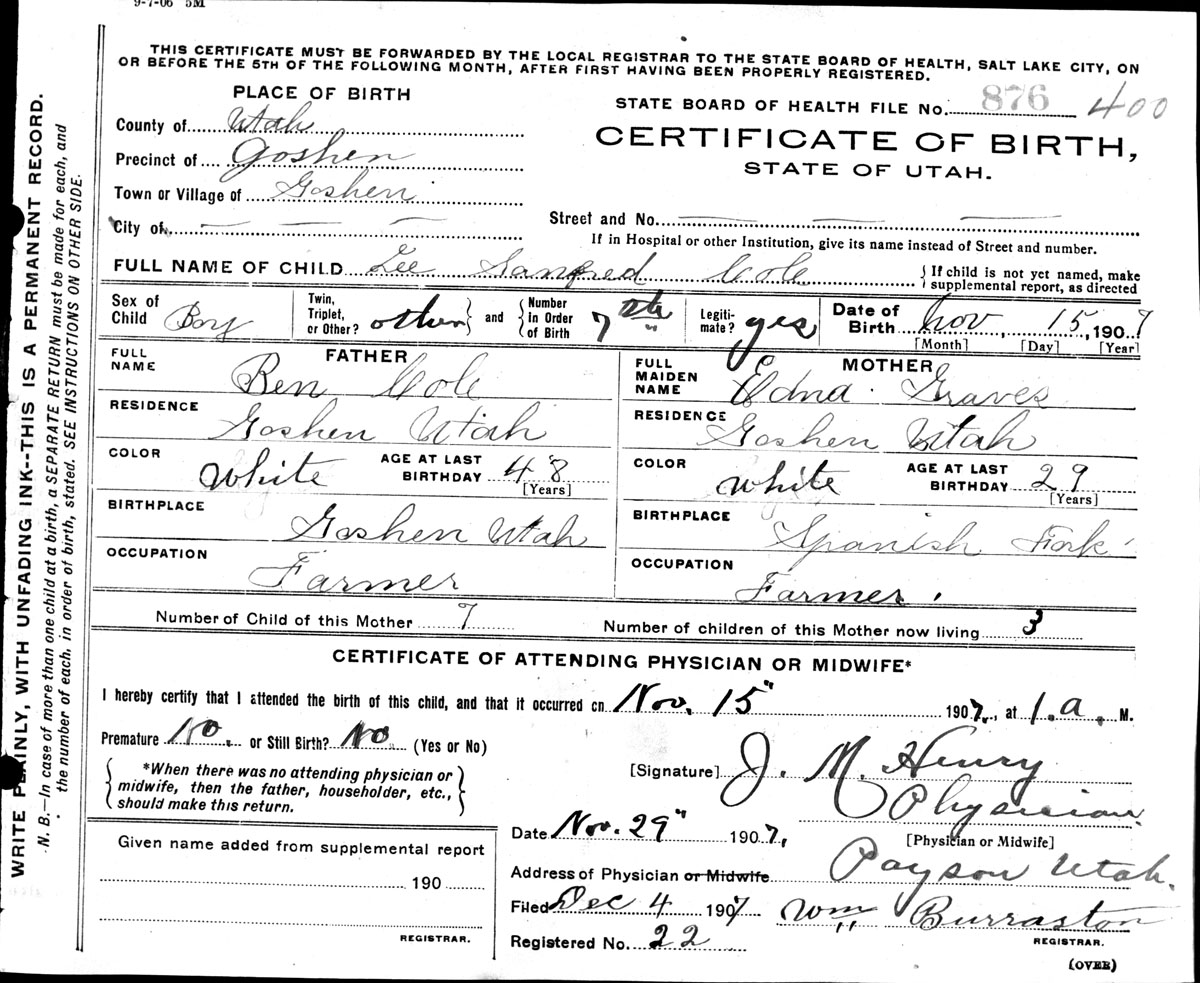 9-7-06 5M
THIS CERTIFICATE MUST BE FORWARDED BY THE LOCAL REGISTRAR TO THE STATE BOARD OF HEALTH, SALT LAKE CITY, ON
OR BEFORE THE 5TH OF THE FOLLOWING MONTH, AFTER FIRST HAVING BEEN PROPERLY REGISTERED.
WRITE PLAINLY, WITH UNFADING INK--THIS IS A PERMANENT RECORD.
N. B.—In case of more than one child at a birth, a SEPARATE RETURN must be made for each, and
the number of each, in order of birth, stated. SEE INSTRUCTIONS ON OTHER SIDE.
PLACE OF BIRTH
County of Utah
Precinct of Goshen
Town or Village of Goshen
City of
STATE BOARD OF HEALTH FILE No. 876 400
CERTIFICATE OF BIRTH,
STATE OF UTAH.
Street and No.
If in Hospital or other Institution, give its name instead of Street and number.
FULL NAME OF CHILD Lee Sanfred Cole { If child is not yet named, make
supplemental report, as directed
Sex of Child Boy
Twin, Triplet, or Other? other } and { Number in Order of Birth 7th
Legiti-mate? yes
Date of Birth Nov 15, 1907
[Month] [Day] [Year]
FATHER
FULL NAME Ben Cole
RESIDENCE Goshen Utah
COLOR White AGE AT LAST BIRTHDAY 48
[Years]
BIRTHPLACE Goshen Utah
OCCUPATION Farmer
MOTHER
FULL MAIDEN NAME Edna Graves
RESIDENCE Goshen Utah
COLOR White AGE AT LAST BIRTHDAY 29
[Years]
BIRTHPLACE Spanish Fork
OCCUPATION Farmer
Number of Child of this Mother 7 Number of children of this Mother now living 3
CERTIFICATE OF ATTENDING PHYSICIAN OR MIDWIFE*
I hereby certify that I attended the birth of this child, and that it occurred on Nov. 15" 1907, at 1.a. M.
Premature No. or Still Birth? No (Yes or No)
{ *When there was no attending physician or
midwife, then the father, householder, etc.,
should make this return. }
[Signature] J. M. Henry
Physician
[Physician or Midwife]
Date Nov. 29" 1907,
Address of Physician or Midwife Payson Utah.
Filed Dec 4 1907 Wm Burraston
REGISTRAR.
Registered No. 22
Given name added from supplemental report
190
REGISTRAR.
(OVER)